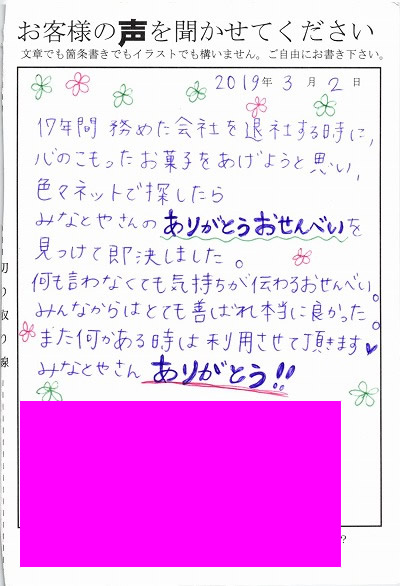 お客様の声を聞かせてください
文章でも箇条書きでもイラストでも構いません。ご自由にお書き下さい。
2019年3月2日
17年間 務めた会社を退社する時に,
心のこもったお菓子をあげようと思い,
色々ネットで探したら
みなとやさんのありがとうおせんべいを
見つけて即決しました。
何も言わなくても気持ちが伝わるおせんべい。
みんなからはとても喜ばれ本当に良かった。
また何かある時は利用させて頂きます♥
みなとやさん ありがとう!!
切り取り線
?